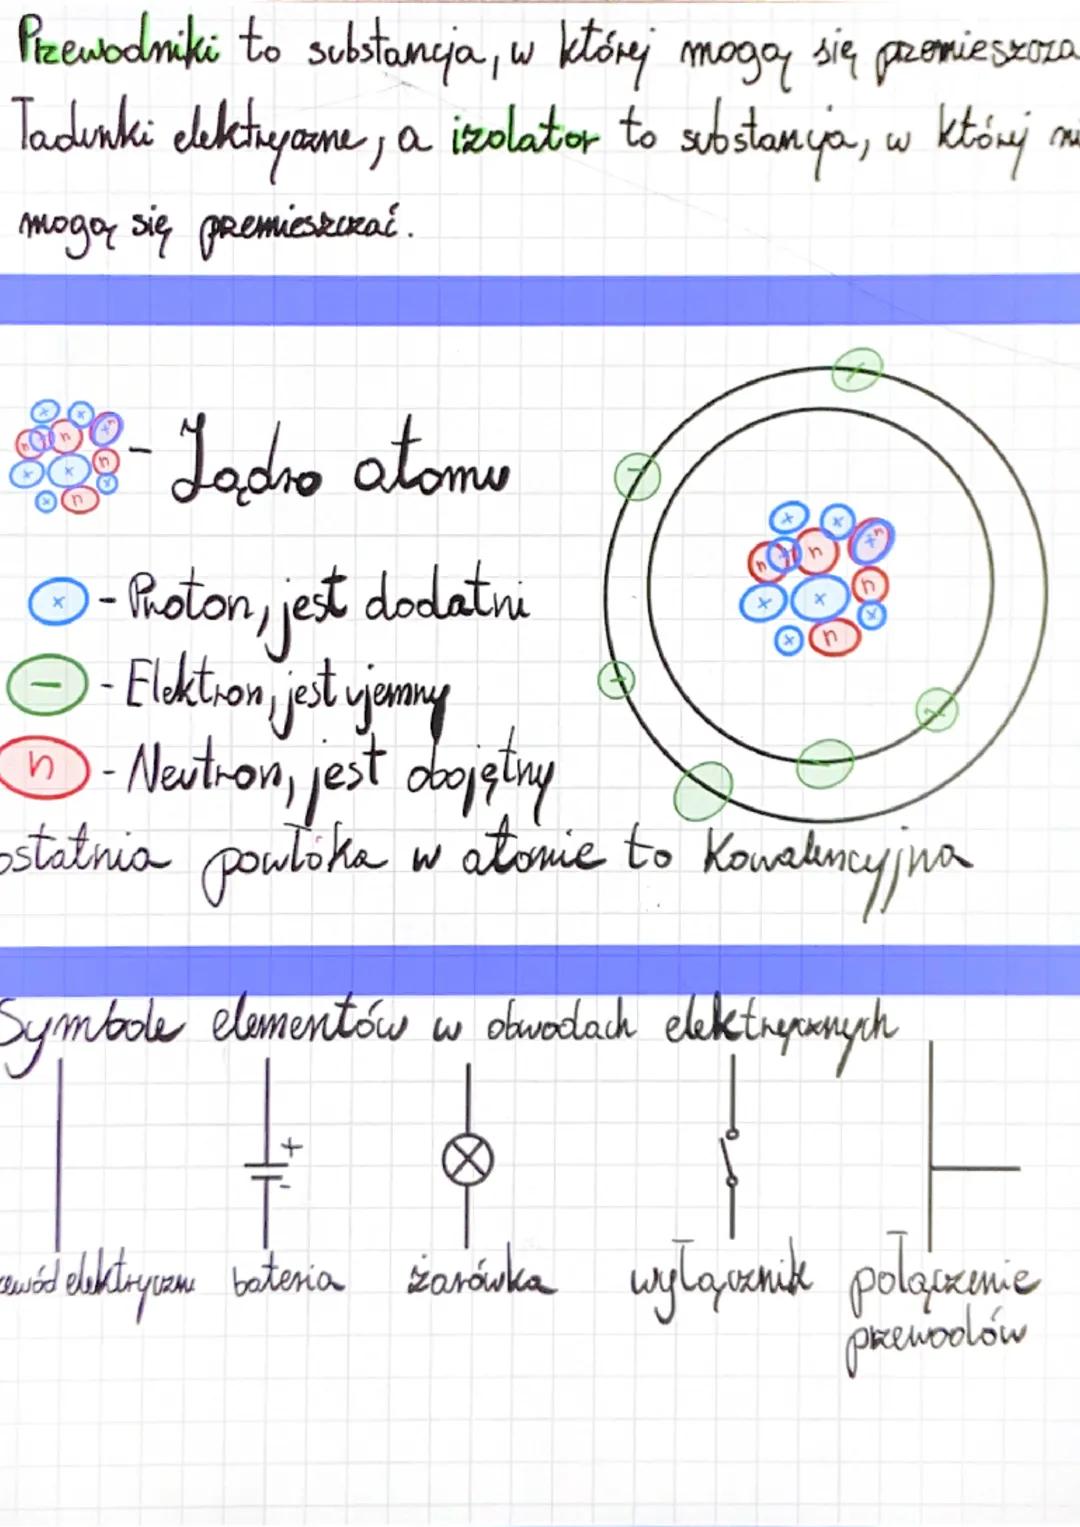 Przewodniki to substancja, w której mogą się przemieszcza
ładunki elektryczne, a izolator to substancja, w której ni
mogą się przemieszczać.
- Jądro atomu
x - Proton, jest dodatni
- Elektron, jest ujemny
n - Neutron, jest obojętny
ostatnia powłoka w atomie to Kowalencyjna
Symbole elementów w obwodach elektrycznych
+
-
ewód elektryczny bateria żarówka wyłącznik połączenie
przewodów